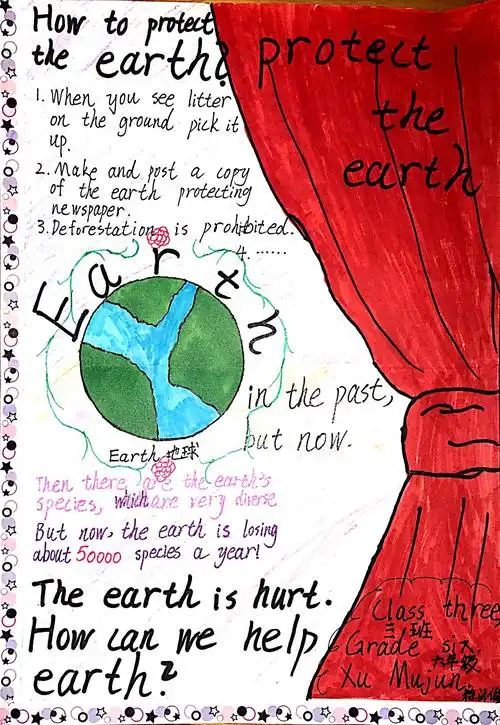 How to protect
the earth?
protect
the
earth
1. When you see litter
on the ground pick it
up.
2. Make and post a copy
of the earth protecting
newspaper.
3. Deforestation is prohibited.
4. ......
Earth
in the past,
but now.
Earth 地球
Then there are the earth's
species, which are very diverse
But now, the earth is losing
about 50000 species a year!
The earth is hurt.
How can we help
earth?
Class three,
三班
Grade six.
六年级
Xu Mujun.